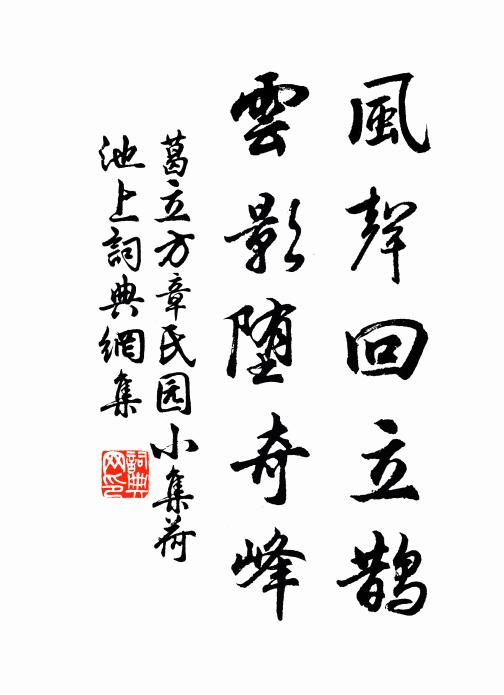 風聲回立鵲
雲影堕奇峰
葛立方章民园小集荷
池上詞典網集
詞典网印